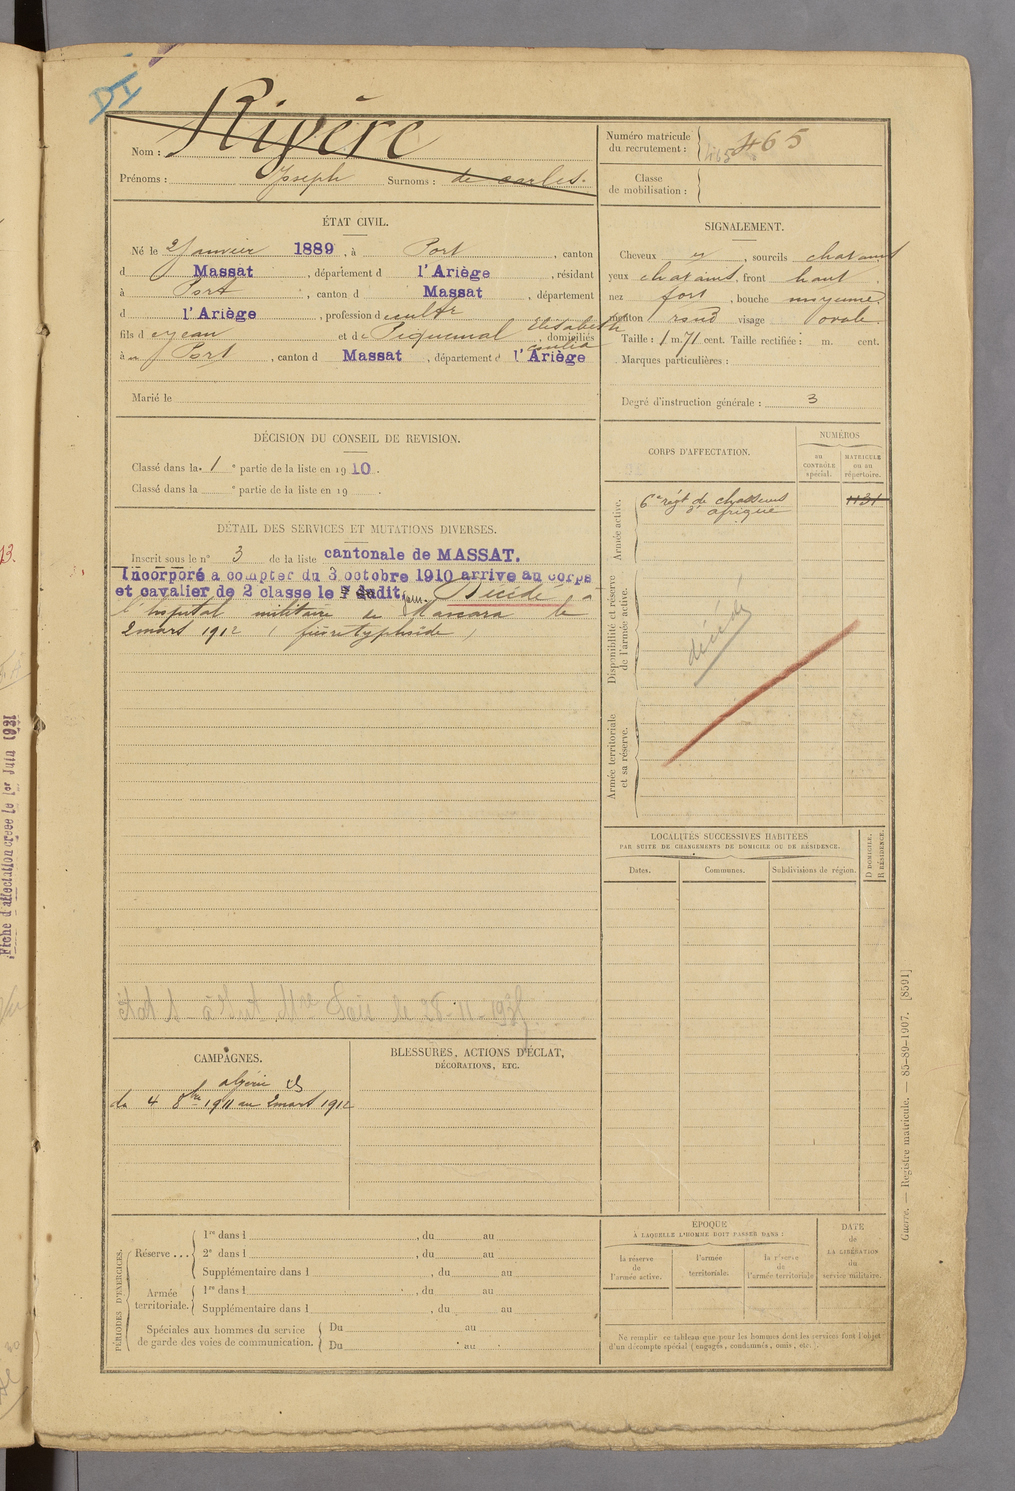 DI
Nom : Rivère
Prénoms : Joseph Surnoms : de carles
Numéro matricule du recrutement : 465
Classe de mobilisation :
ÉTAT CIVIL.
Né le 2 Janvier 1889, à Port, canton
d Massat, département d l'Ariège, résidant
à Port, canton d Massat, département
d l'Ariège, profession d cultr
fils d Jean et d Piquemal Elisabeth domiciliés
à Port, canton d Massat, département d l'Ariège
Marié le
SIGNALEMENT.
Cheveux et, sourcils chatains
yeux chatains, front haut
nez fort, bouche moyenne
menton rond visage ovale
Taille : 1 m. 71 cent. Taille rectifiée : m. cent.
Marques particulières :
Degré d'instruction générale : 3
DÉCISION DU CONSEIL DE REVISION.
Classé dans la 1 e partie de la liste en 1910.
Classé dans la e partie de la liste en 19 .
DÉTAIL DES SERVICES ET MUTATIONS DIVERSES.
Inscrit sous le n° 3 de la liste cantonale de MASSAT.
Incorporé a compter du 3 octobre 1910 arrive au corps
et cavalier de 2 classe le dudit jour. Décédé à
l'hopital militaire de Mascara le
2 mars 1912 (fièvre typhoïde)
CORPS D'AFFECTATION.
NUMÉROS
AU CONTRÔLE spécial.
MATRICULE OU AU répertoire.
Armée active.
6e régt de chasseurs d'afrique
1131
Disponibilité et réserve de l'armée active.
décédé
Armée territoriale et sa réserve.
LOCALITÉS SUCCESSIVES HABITÉES
PAR SUITE DE CHANGEMENTS DE DOMICILE OU DE RÉSIDENCE.
Dates. Communes. Subdivisions de région. D DOMICILE. R RÉSIDENCE.
CAMPAGNES.
algérie
du 4 8bre 1911 au 2 mars 1912
BLESSURES, ACTIONS D'ÉCLAT,
DÉCORATIONS, ETC.
PÉRIODES D'EXERCICES.
Réserve ... 1re dans l , du au
2e dans l , du au
Supplémentaire dans l , du au
Armée territoriale. 1re dans l , du au
Supplémentaire dans l , du au
Spéciales aux hommes du service de garde des voies de communication. Du au
Du au
ÉPOQUE
À LAQUELLE L'HOMME DOIT PASSER DANS :
la réserve de l'armée active.
l'armée territoriale.
la réserve de l'armée territoriale
DATE de LA LIBÉRATION du service militaire.
Ne remplir ce tableau que pour les hommes dont les services font l'objet
d'un décompte spécial (engagés, condamnés, omis, etc.).
Guerre. — Registre matricule. — 85-89-1907. [8591]
Fiche d'affectation créée le 1er Juin 1931